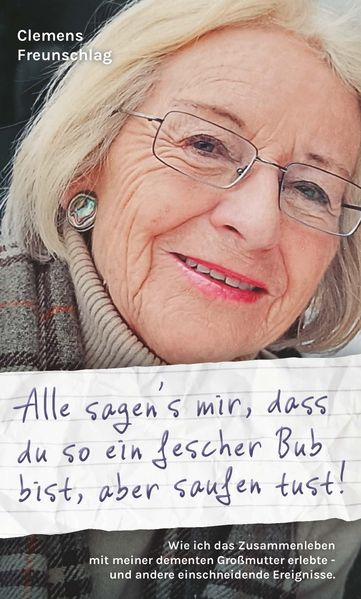 Clemens
Freunschlag
Alle sagen's mir, dass
du so ein fescher Bub
bist, aber saufen tust!
Wie ich das Zusammenleben
mit meiner dementen Großmutter erlebte -
und andere einschneidende Ereignisse.